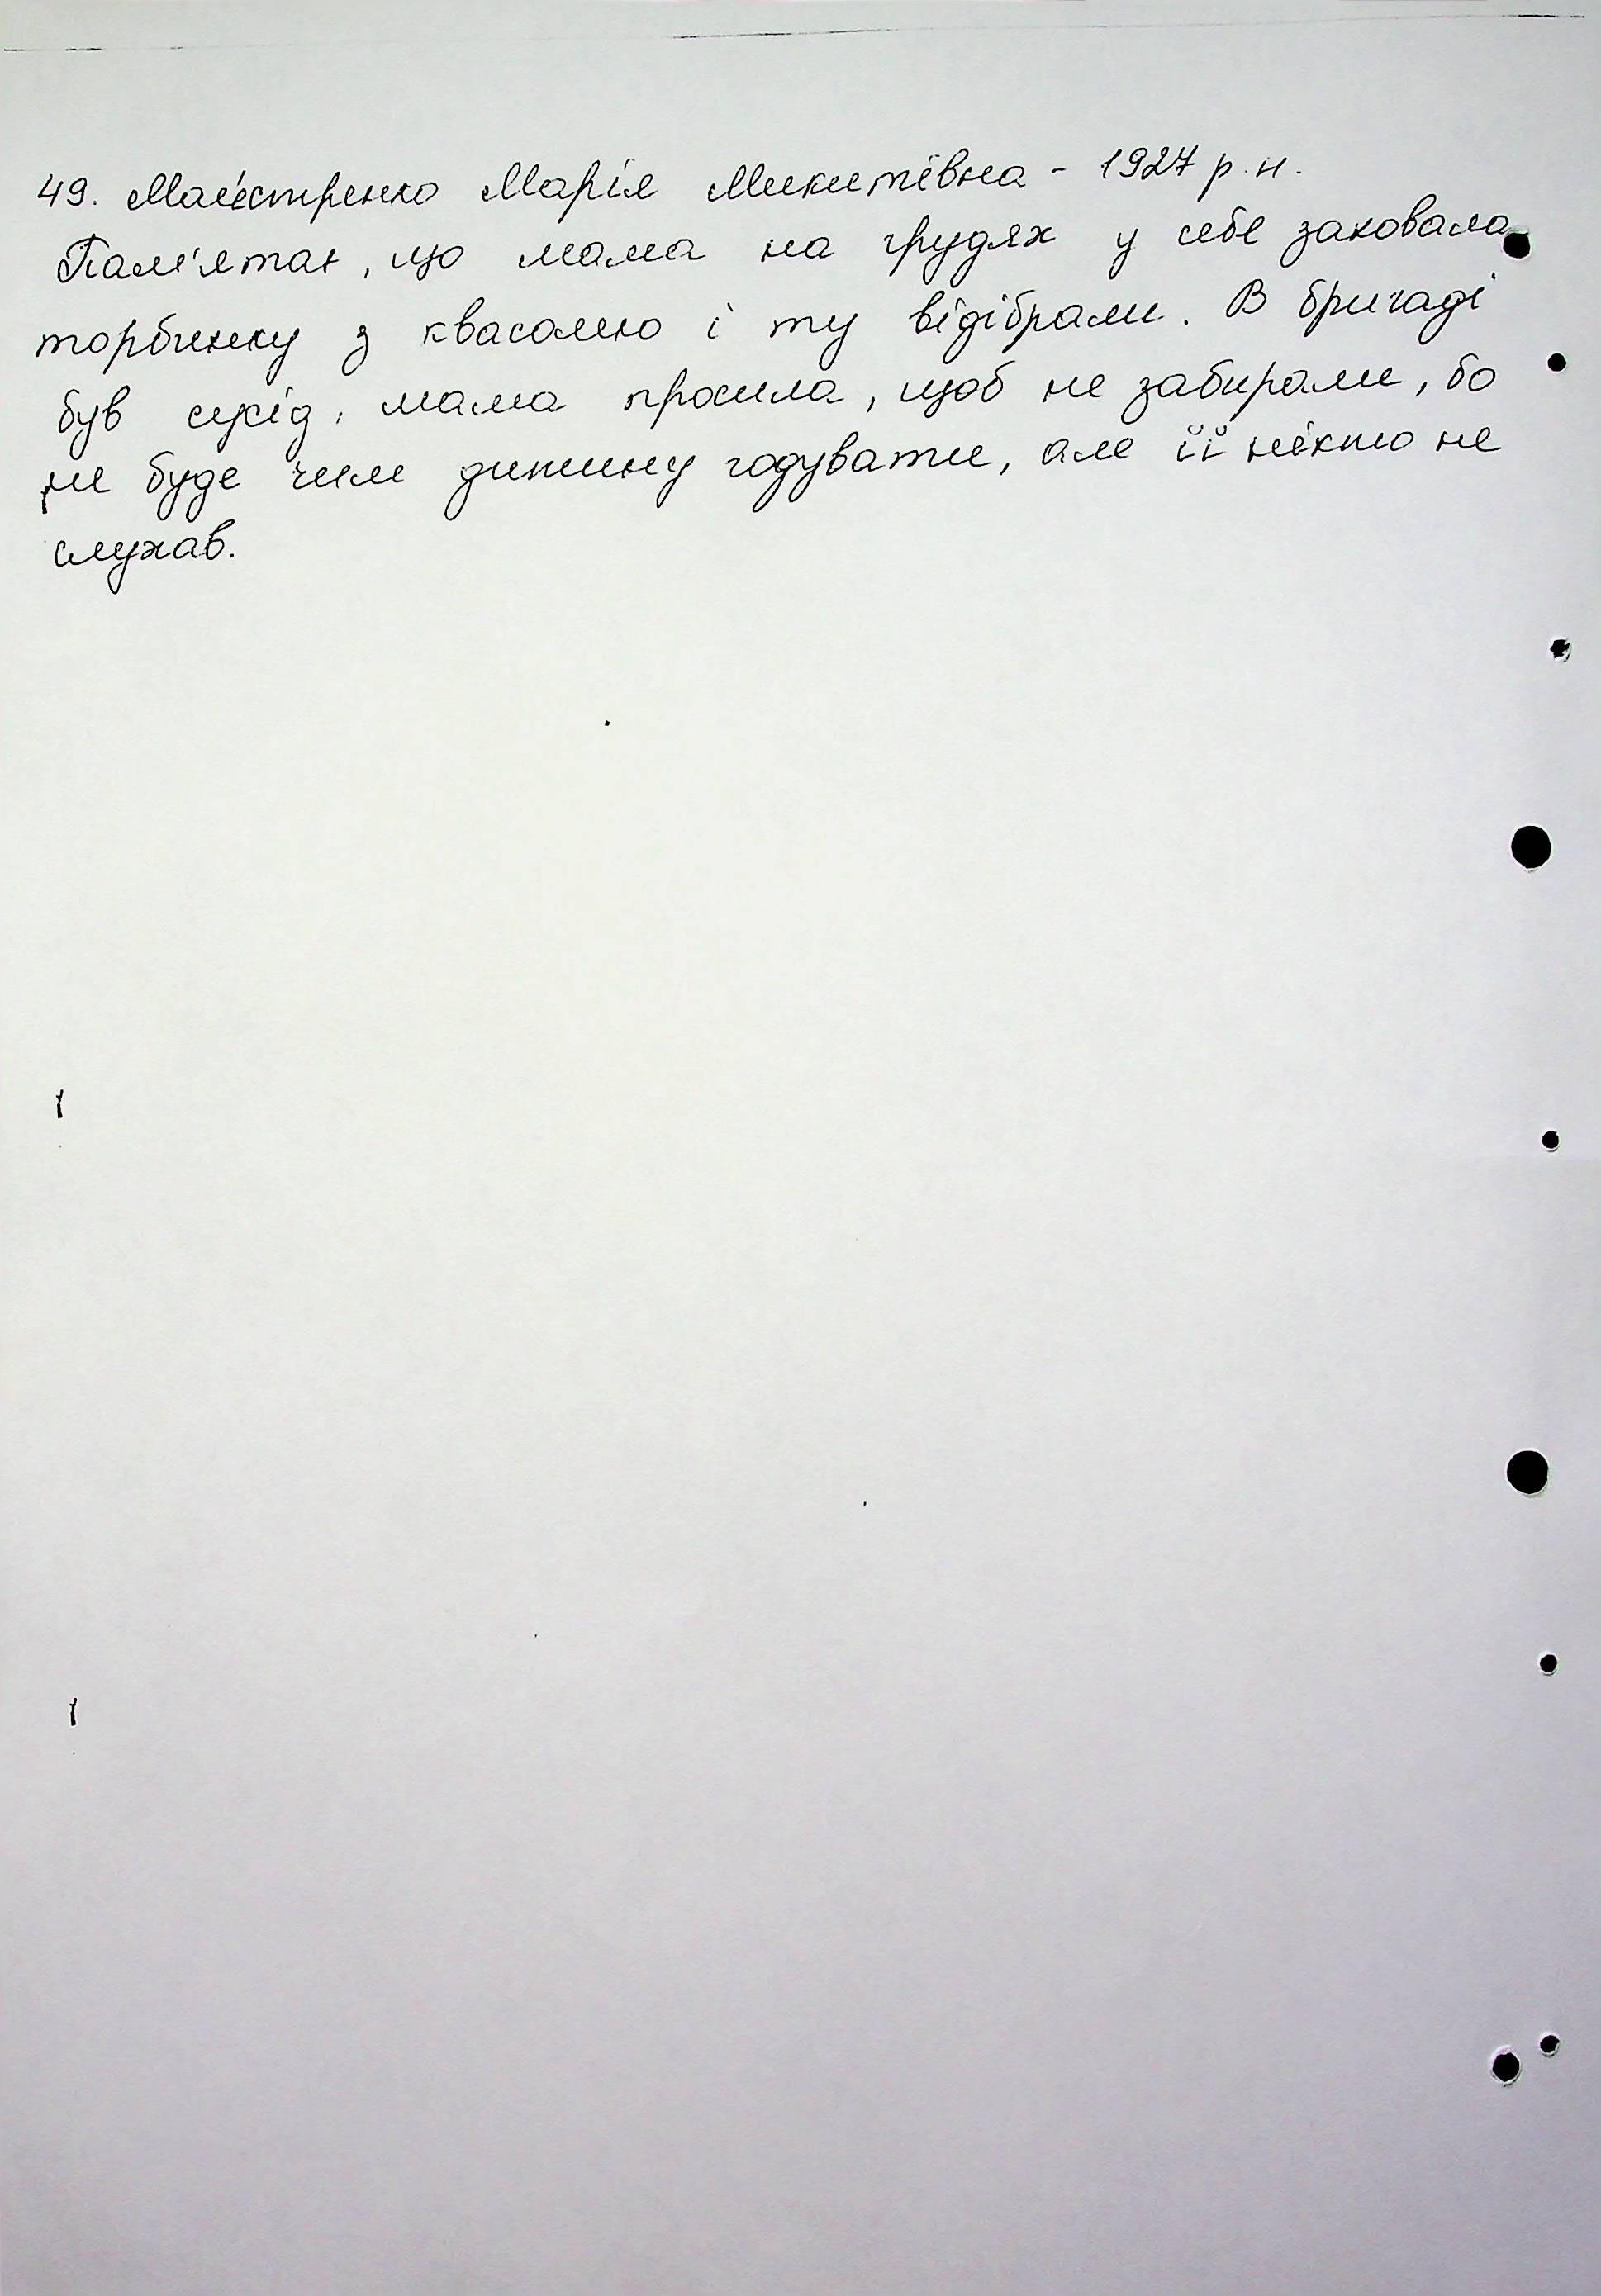 49. Маїстренко Марія Микитівна - 1927 р. н.
Пам'ятає, що мама на грудях у себе заховала
торбинку з квасолею і ту відібрали. В бригаді
був сусід, мама просила, щоб не забирали, бо
не буде чим дитину годувати, але її ніхто не
слухав.